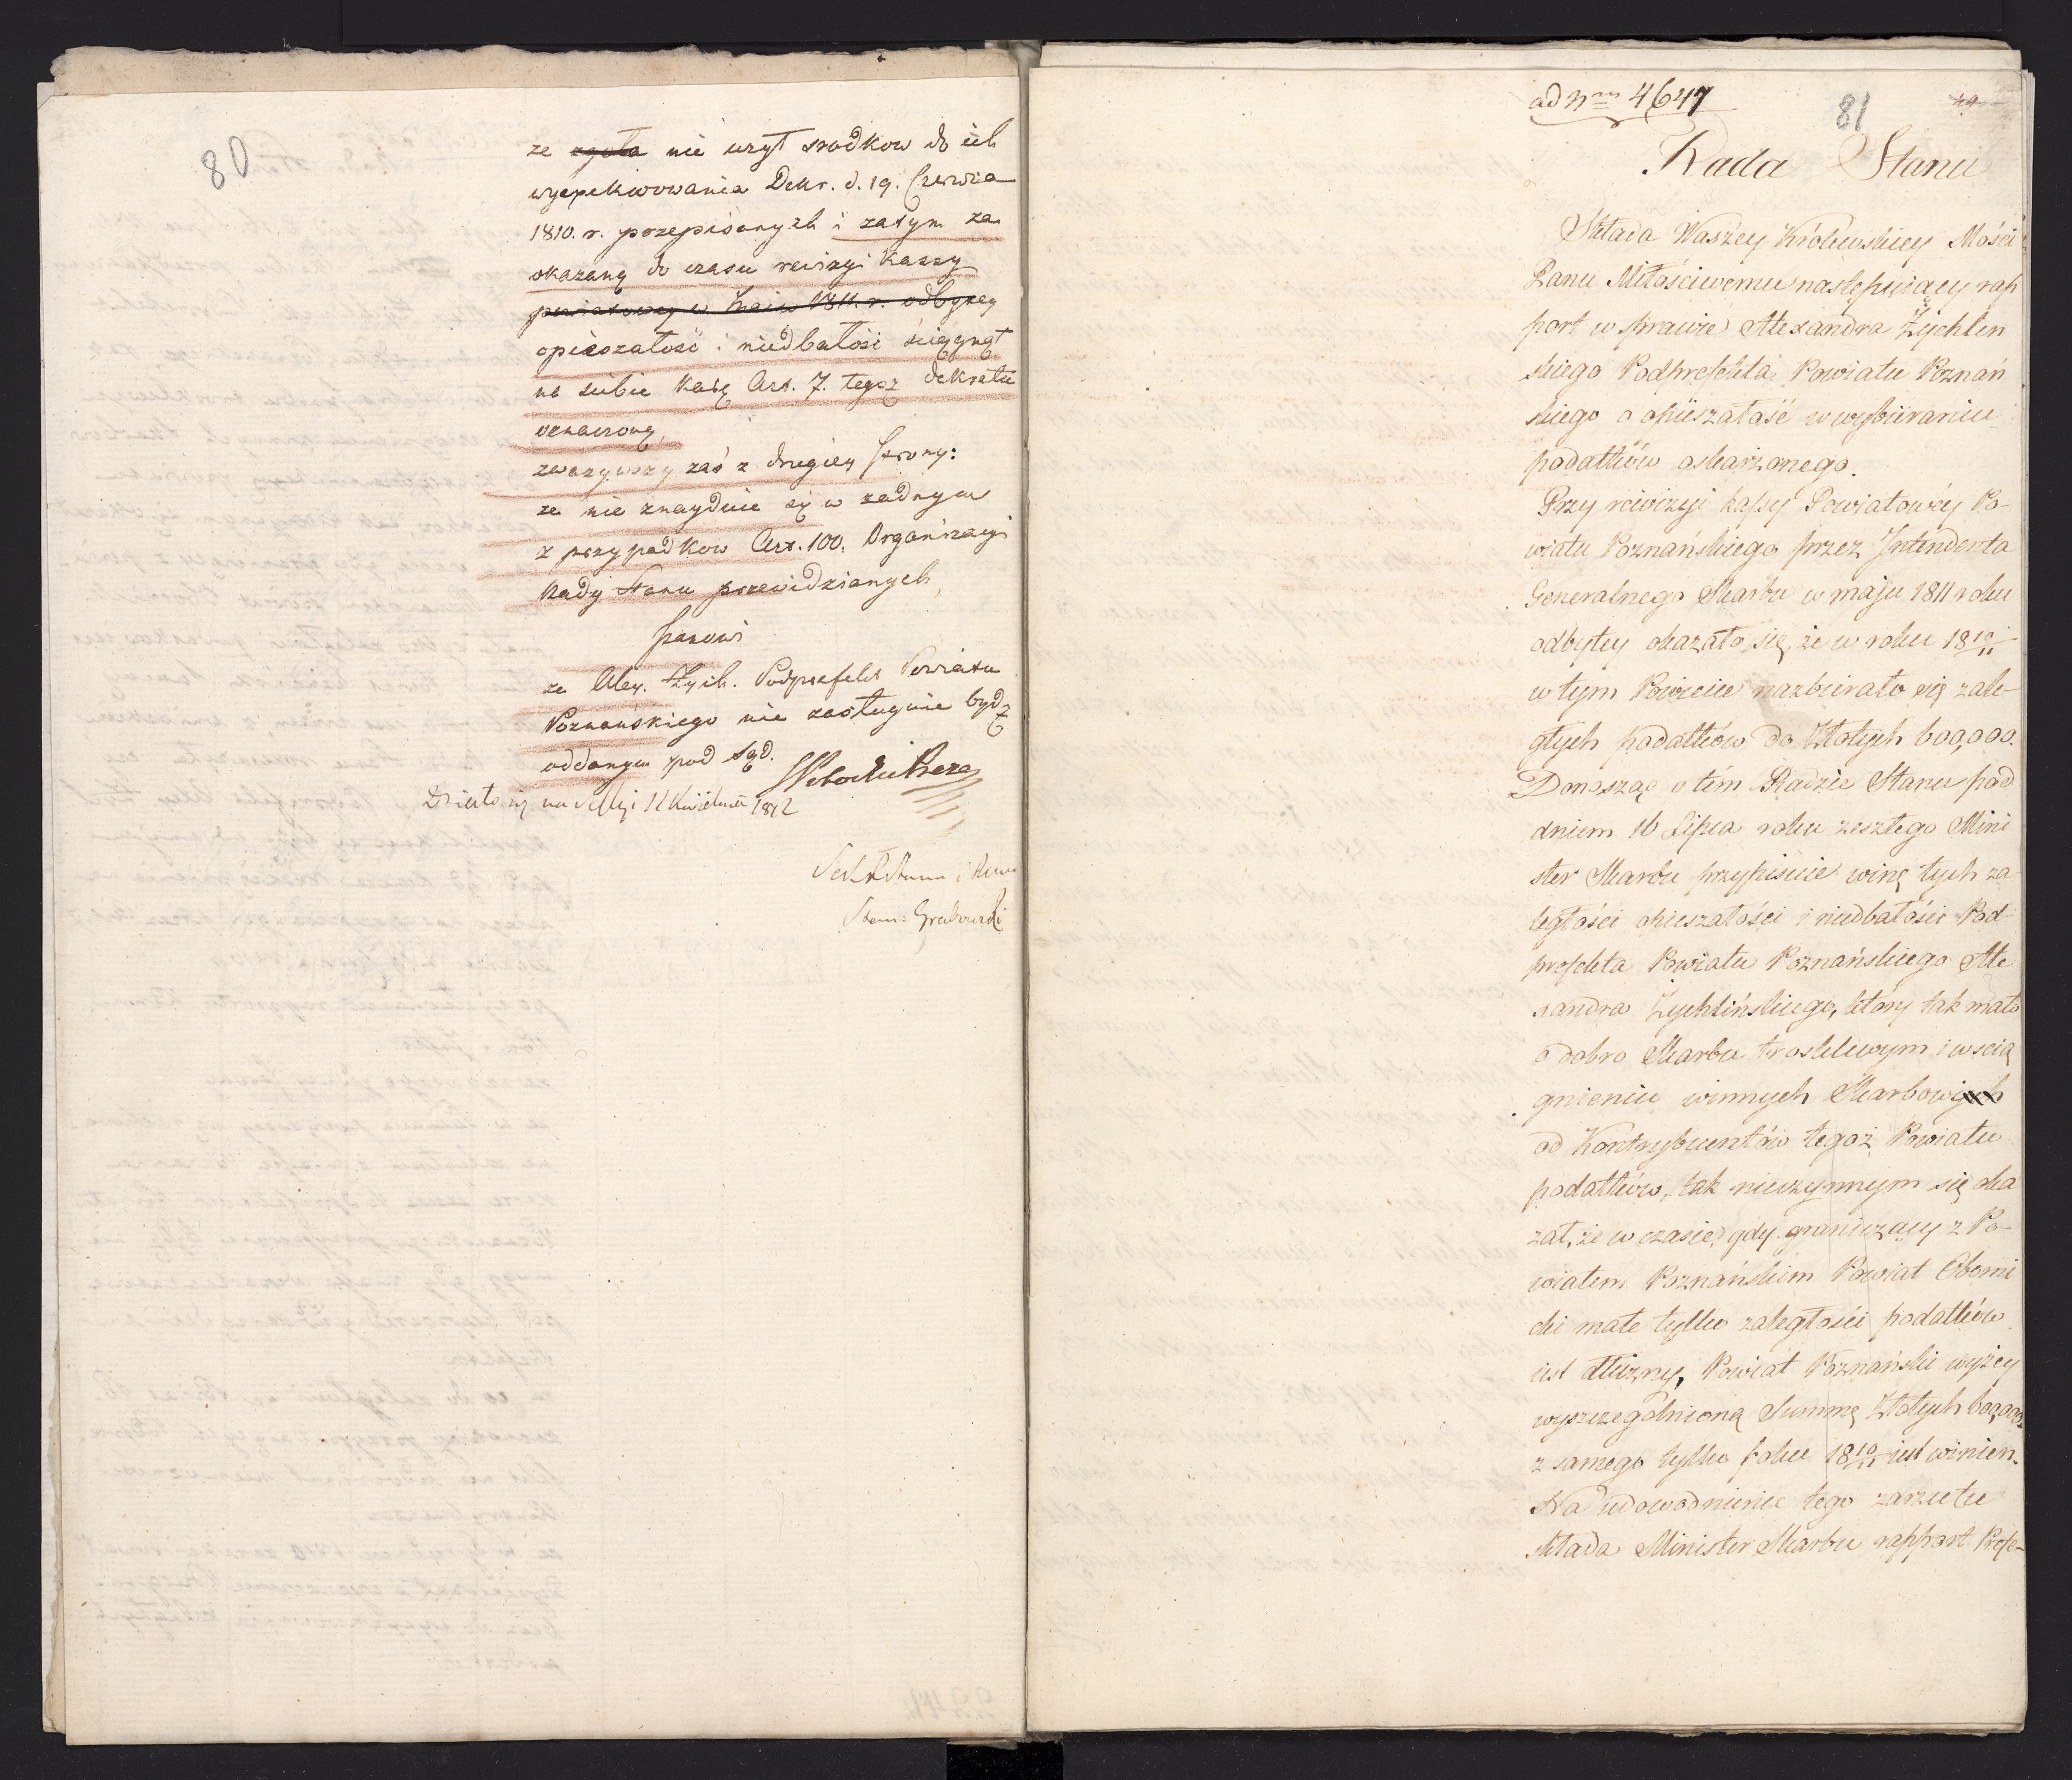 80
ze zgoła nie użył srodkow do ich
wyexpekwowania Dekr. d. 19. Czerwca
1810. r. przepisanych i zatym za
okazaną do czasu rewizyi Kassy
powiatowey w Maiu 1811. r. odbytey
opieszałość i niedbałość ściągnął
na siebie karę Art. 7. tegoż dekretu
oznaczoną,
zważywszy zaś z drugiey strony:
ze nie znayduie się w żadnym
z przypadkow Art. 100. Organizacyi
Rady Stanu przewidzianych,
stanowi
ze Alex. Zych. Podprefekt Powiatu
Poznańskiego nie zasługuie bydź
oddanym pod sąd.
Działo się na Sessyi 11 Kwietnia 1812
Stan: Grabowski
ad Nrm 4647
81
Rada Stanu
Składa Waszey Królewskiey Mości
Panu Miłościwemu nastepuiący rap
port w sprawie Alexandra Zychlin
skiego Podprefekta Powiatu Poznań
skiego o opieszałość w wybieraniu
podatków oskarżonego.
Przy rewizyi kassy Powiatowey Po-
wiatu Poznańskiego przez Intendenta
Generalnego Skarbu w maju 1811 roku
odbytey okazało się, że w roku 18 10/11
w tym Powiecie nazbierało się zale-
głych podatków do Złotych 600,000.
Donosząc o tém Radzie Stanu pod
dniem 16 Lipca roku zeszłego Mini
ster Skarbu przypisuie winę tych za
ległości opieszałości i niedbałości Pod-
prefekta Powiatu Poznańskiego Ale
xandra Zychlińskiego, który tak mało
o dobro Skarbu troskliwym i w scią
gnieniu winnych Skarbowi
od Kontrybuentów tegoż Powiatu
podatków, tak nieczynnym się oka
zał, że w czasie, gdy graniczący z Po-
wiatem Poznańskim Powiat Oborni
cki małe tylko zaległości podatków
iest dłużny, Powiat Poznański wyżey
wyszczególnioną Summę Złotych 600,000.
z samego tylko roku 18 10/11 iest winien.
Na udowodnienie tego zarzutu
składa Minister Skarbu rapport Prefe-